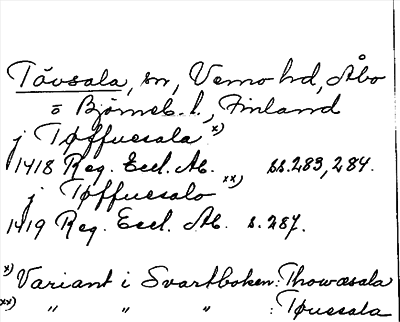 Tövsala, sn, Vemo hd, Åbo
o Björneb. l., Finland
j Tøffuesala x)
1418 Reg. Eccl. Ab. ss. 283, 284.
j Tøffuesalo xx)
1419 Reg. Eccl. Ab. s. 287.
x) Variant i Svartboken: Thowæsala
xx) " " " : Tøuesala